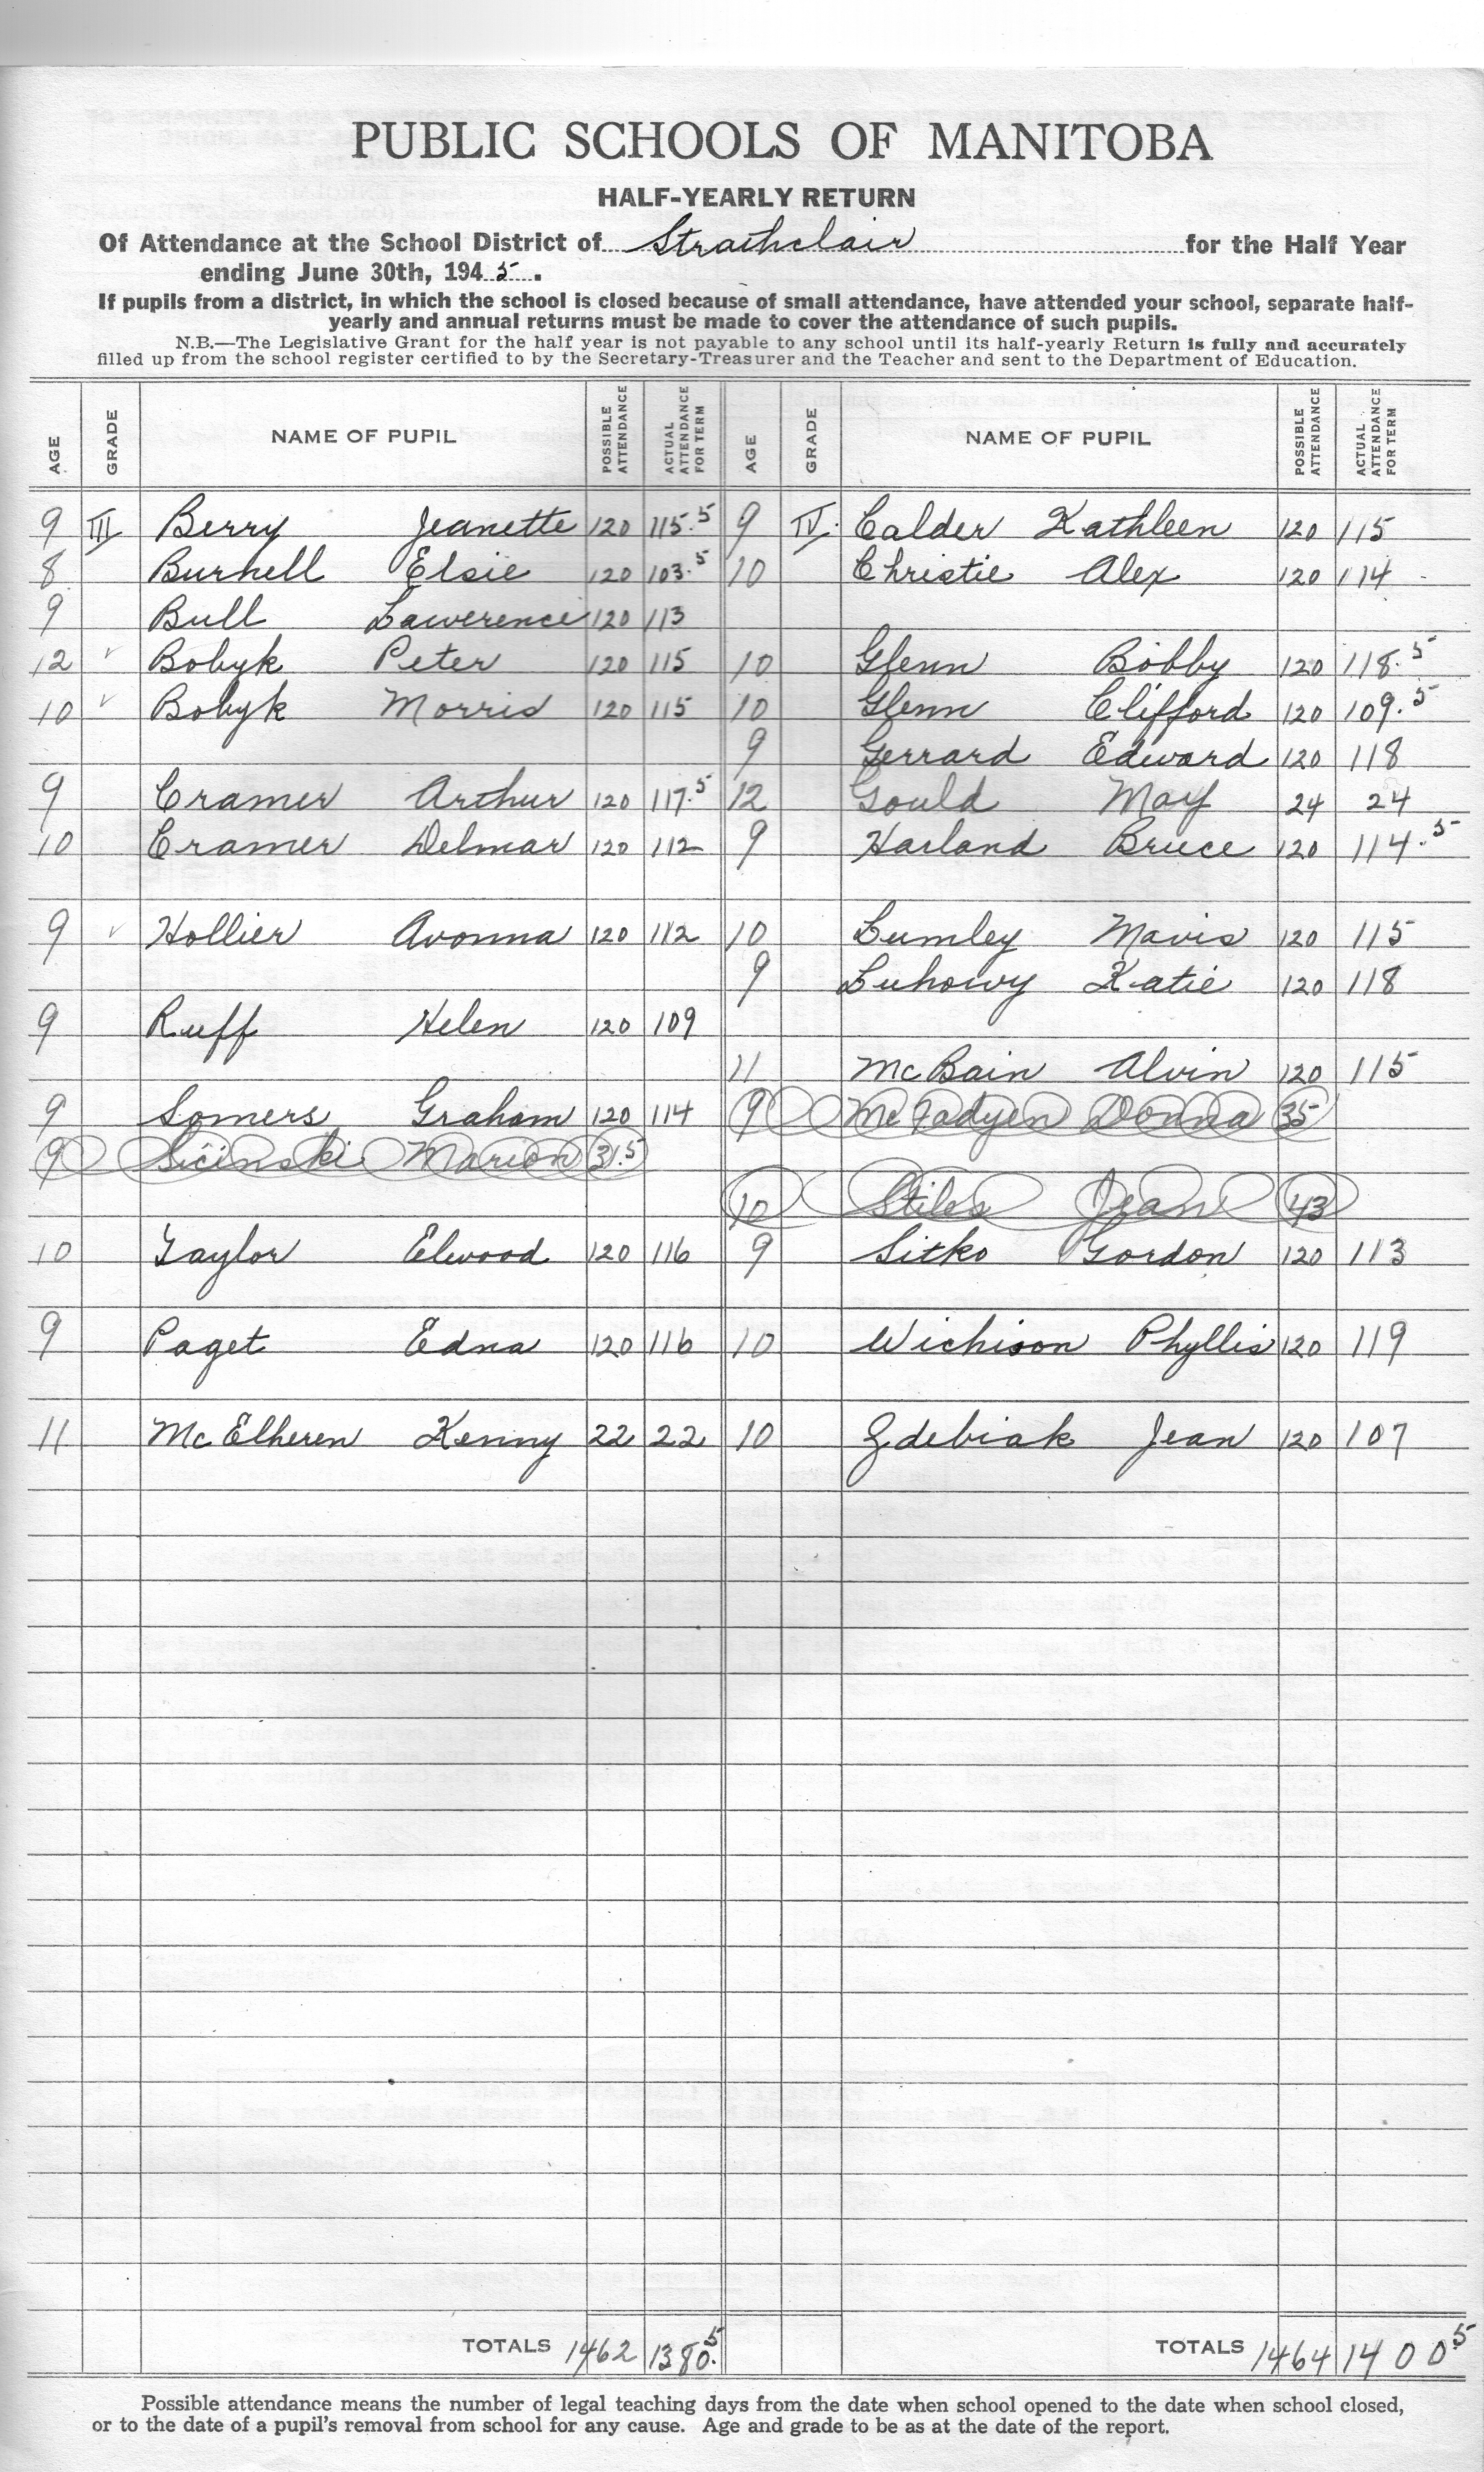 PUBLIC SCHOOLS OF MANITOBA
HALF-YEARLY RETURN
Of Attendance at the School District of Strathclair for the Half Year
ending June 30th, 1945.
If pupils from a district, in which the school is closed because of small attendance, have attended your school, separate half-
yearly and annual returns must be made to cover the attendance of such pupils.
N.B.—The Legislative Grant for the half year is not payable to any school until its half-yearly Return is fully and accurately
filled up from the school register certified to by the Secretary-Treasurer and the Teacher and sent to the Department of Education.
AGE GRADE NAME OF PUPIL POSSIBLE ATTENDANCE ACTUAL ATTENDANCE FOR TERM AGE GRADE NAME OF PUPIL POSSIBLE ATTENDANCE ACTUAL ATTENDANCE FOR TERM
9 III Berry Jeanette 120 115.5 9 IV. Calder Kathleen 120 115
8 Burnell Elsie 120 103.5 10 Christie Alex 120 114
9 Bull Lawerence 120 113
12 ✓ Bobyk Peter 120 115 10 Glenn Bobby 120 118.5
10 ✓ Bobyk Morris 120 115 10 Glenn Clifford 120 109.5
9 Gerrard Edward 120 118
9 Cramer Arthur 120 117.5 12 Gould May 24 24
10 Cramer Delmar 120 112 9 Harland Bruce 120 114.5
9 ✓ Hollier Avonna 120 112 10 Lumley Mavis 120 115
9 Luhowy Katie 120 118
9 Ruff Helen 120 109
11 McBain Alvin 120 115
9 Somers Graham 120 114 9 McFadyen Donna 35
9 Sicinski Marion 31.5
10 Stiles Jean 43
10 Taylor Elwood 120 116 9 Sitko Gordon 120 113
9 Paget Edna 120 116 10 Wichison Phyllis 120 119
11 McElheren Kenny 22 22 10 Zdebiak Jean 120 107
TOTALS 1462 1380.5 TOTALS 1464 1400.5
Possible attendance means the number of legal teaching days from the date when school opened to the date when school closed,
or to the date of a pupil's removal from school for any cause. Age and grade to be as at the date of the report.